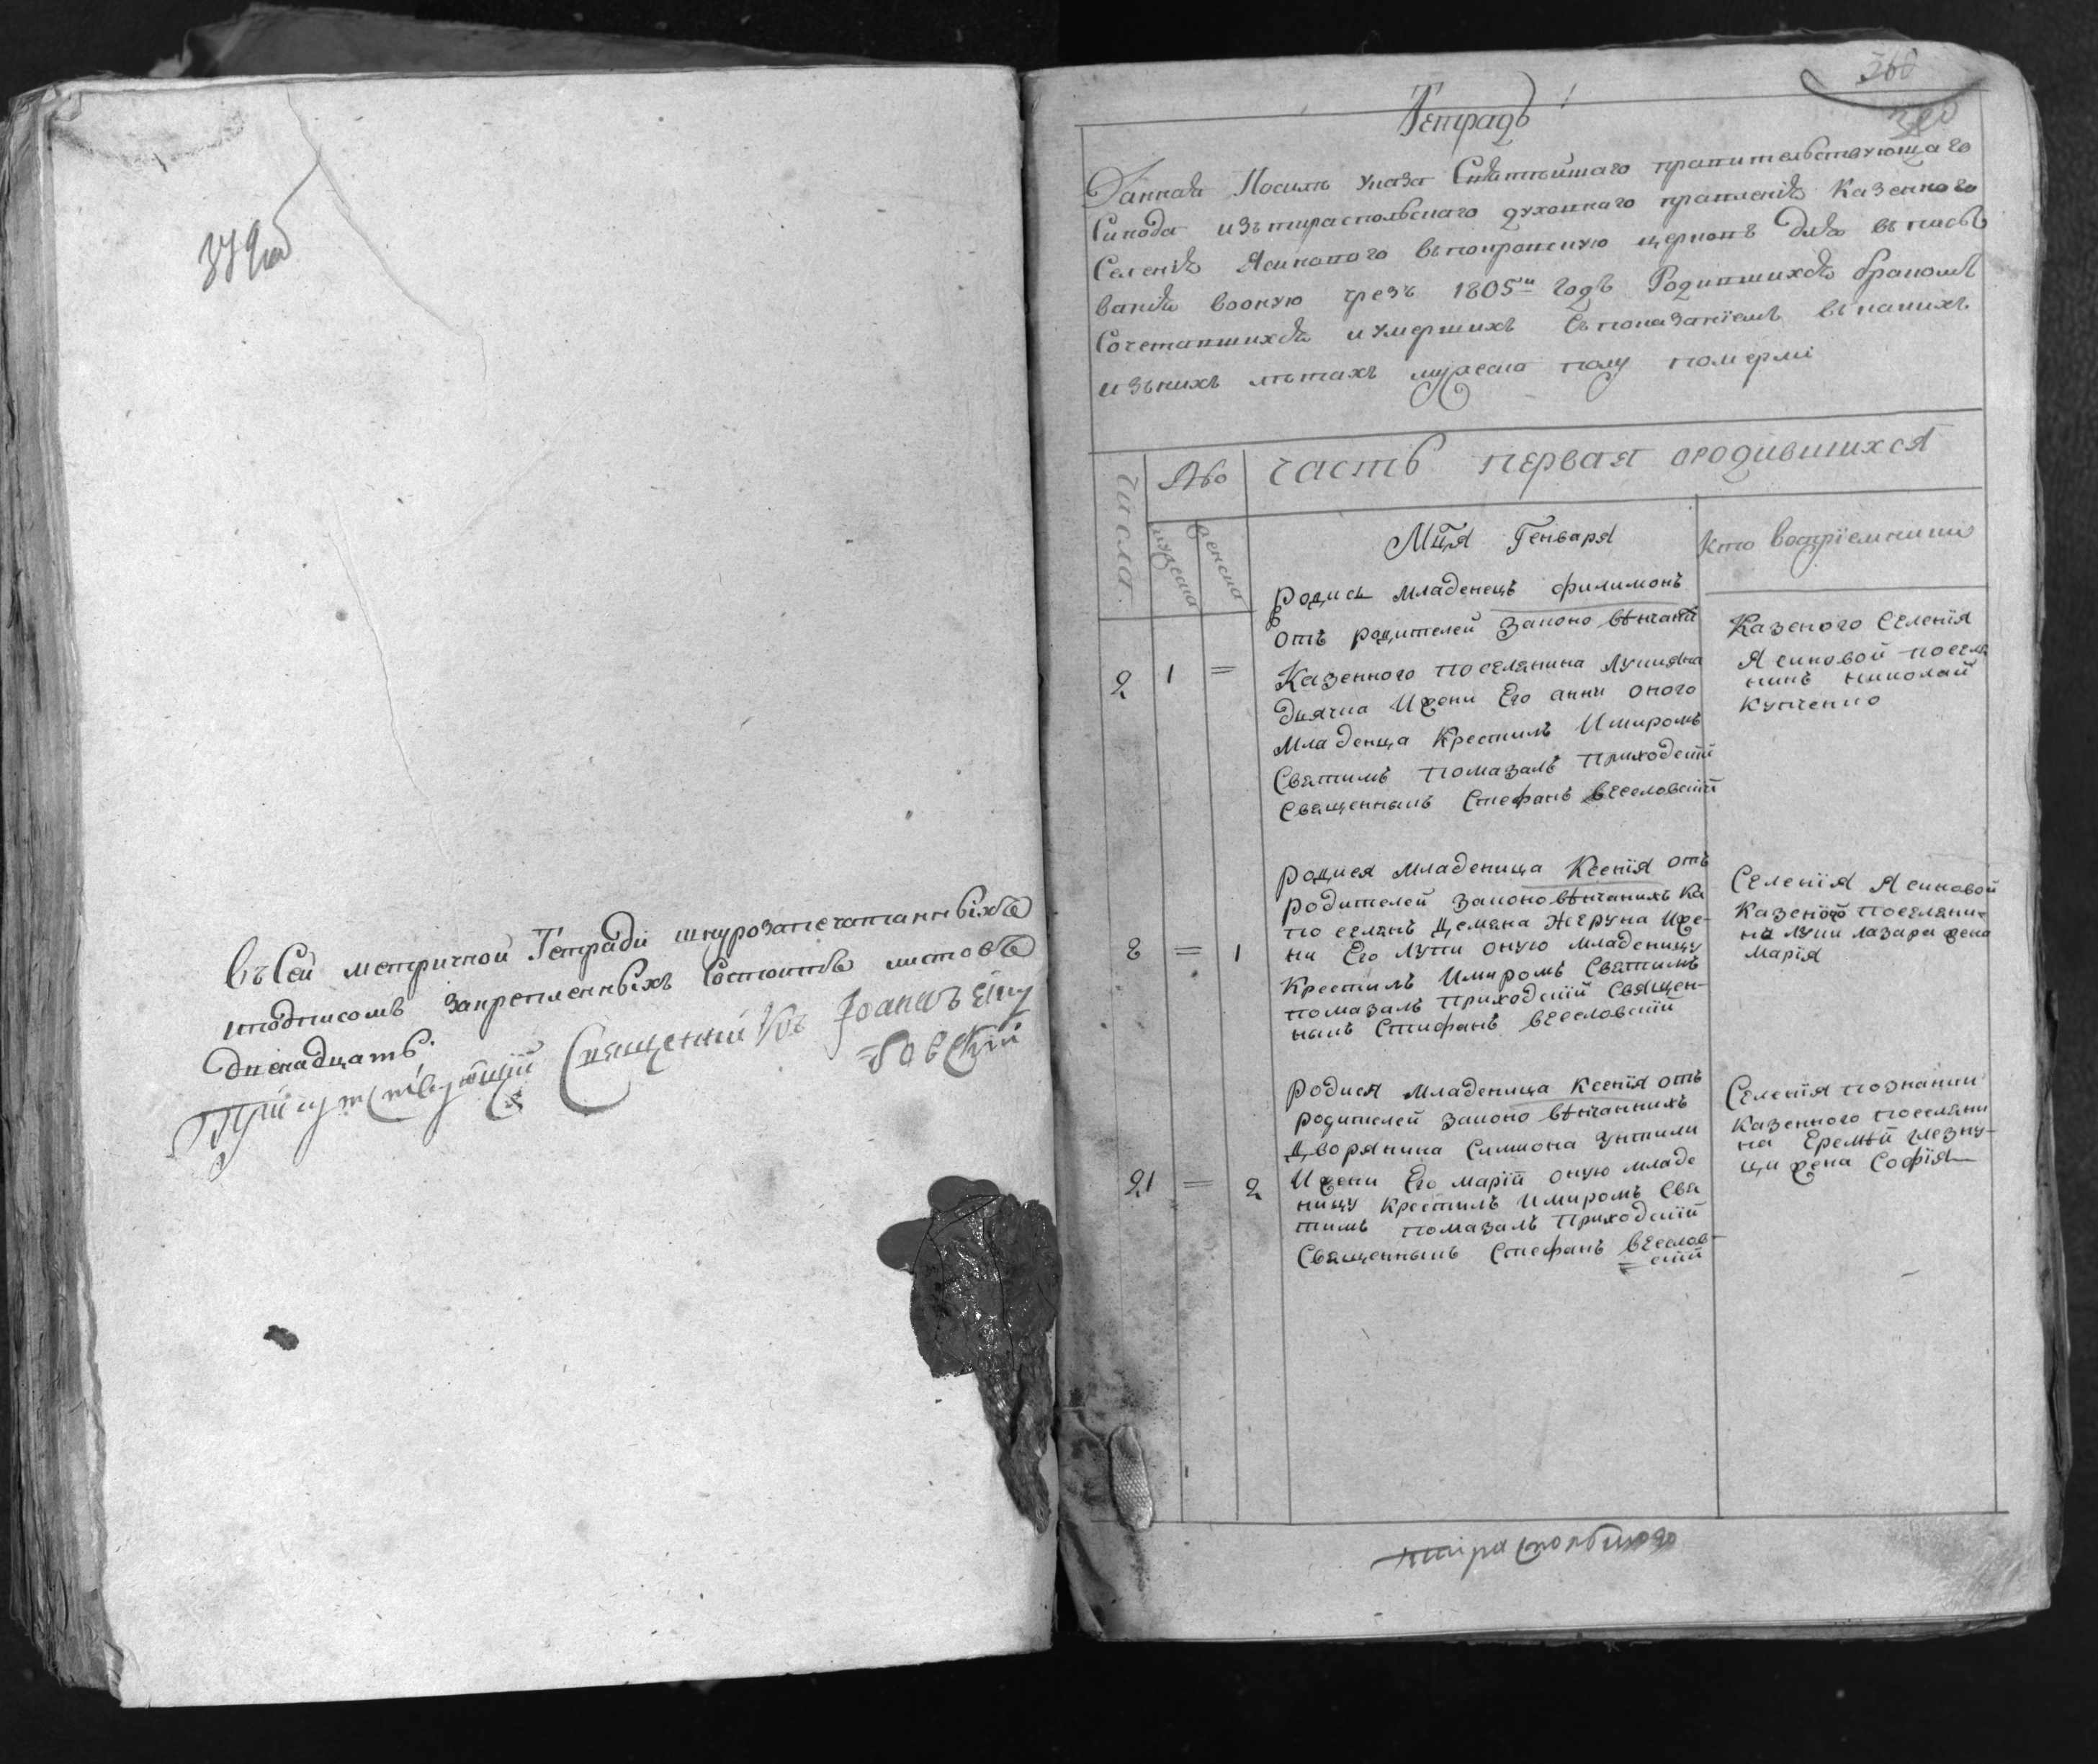 379об
Въ сей метричной Тетради шнурозапечатанныхъ
иподписомъ закрепленныхъ состоитъ листовъ
двенадцать.
Присутствующій Священникъ Іоаннъ
=бовскій
360
Тетрадь
Данная Посилѣ указа Святѣйшаго правительствующаго
Синода изътираспольскаго духовнаго правленія Казенного
Селенія Ясинового въпокровскую церковъ для въписы
ванія вооную чрезъ 1805й годъ Родившихся бракомъ
Сочетавшихся иумершихъ Съпоказаніемъ въкакихъ
изънихъ лѣтахъ мужеска полу померли
числа
Аво
часть первая ородившихся
мужеска
женска
Мця Генваря
Кто воспріемники
Родися младенецъ филимонъ
отъ родителей Законо вѣнчаній
2 1 =
Казенного поселянина Лукияна
дьячка Ижени Его анни оного
Младенца Крестилъ Имиромъ
Святимъ помазалъ приходскій
Священникъ Стефанъ веселовскій
Казеного Селенія
Ясиновой поселя
нинъ николай
купченко
Родися младеница Ксенія отъ
родителей Законовѣнчанихъ Ка
по селянъ Демяна Жеруна Иже-
8 = 1
ни Его Лупи оную младеницу
Крестилъ Имиромъ Святимъ
помазалъ приходскій Священ-
никъ Стифанъ веселовскій
Селенія Ясиновой
Казеного поселяни-
на Луки лазари жена
Марія
Родися Младеница Ксенія отъ
родителей Законо вѣнчаннихъ
Дворянина Симиона
21 = 2
Ижени Его маріи оную младе
ницу крестилъ Имиромъ Свя
тимъ помазалъ приходскій
Священникъ Стефанъ веселов-
=скій
Селенія познанки
казенного поселяни
на Еремѣй глезну-
ци жена Софія
тираспольского